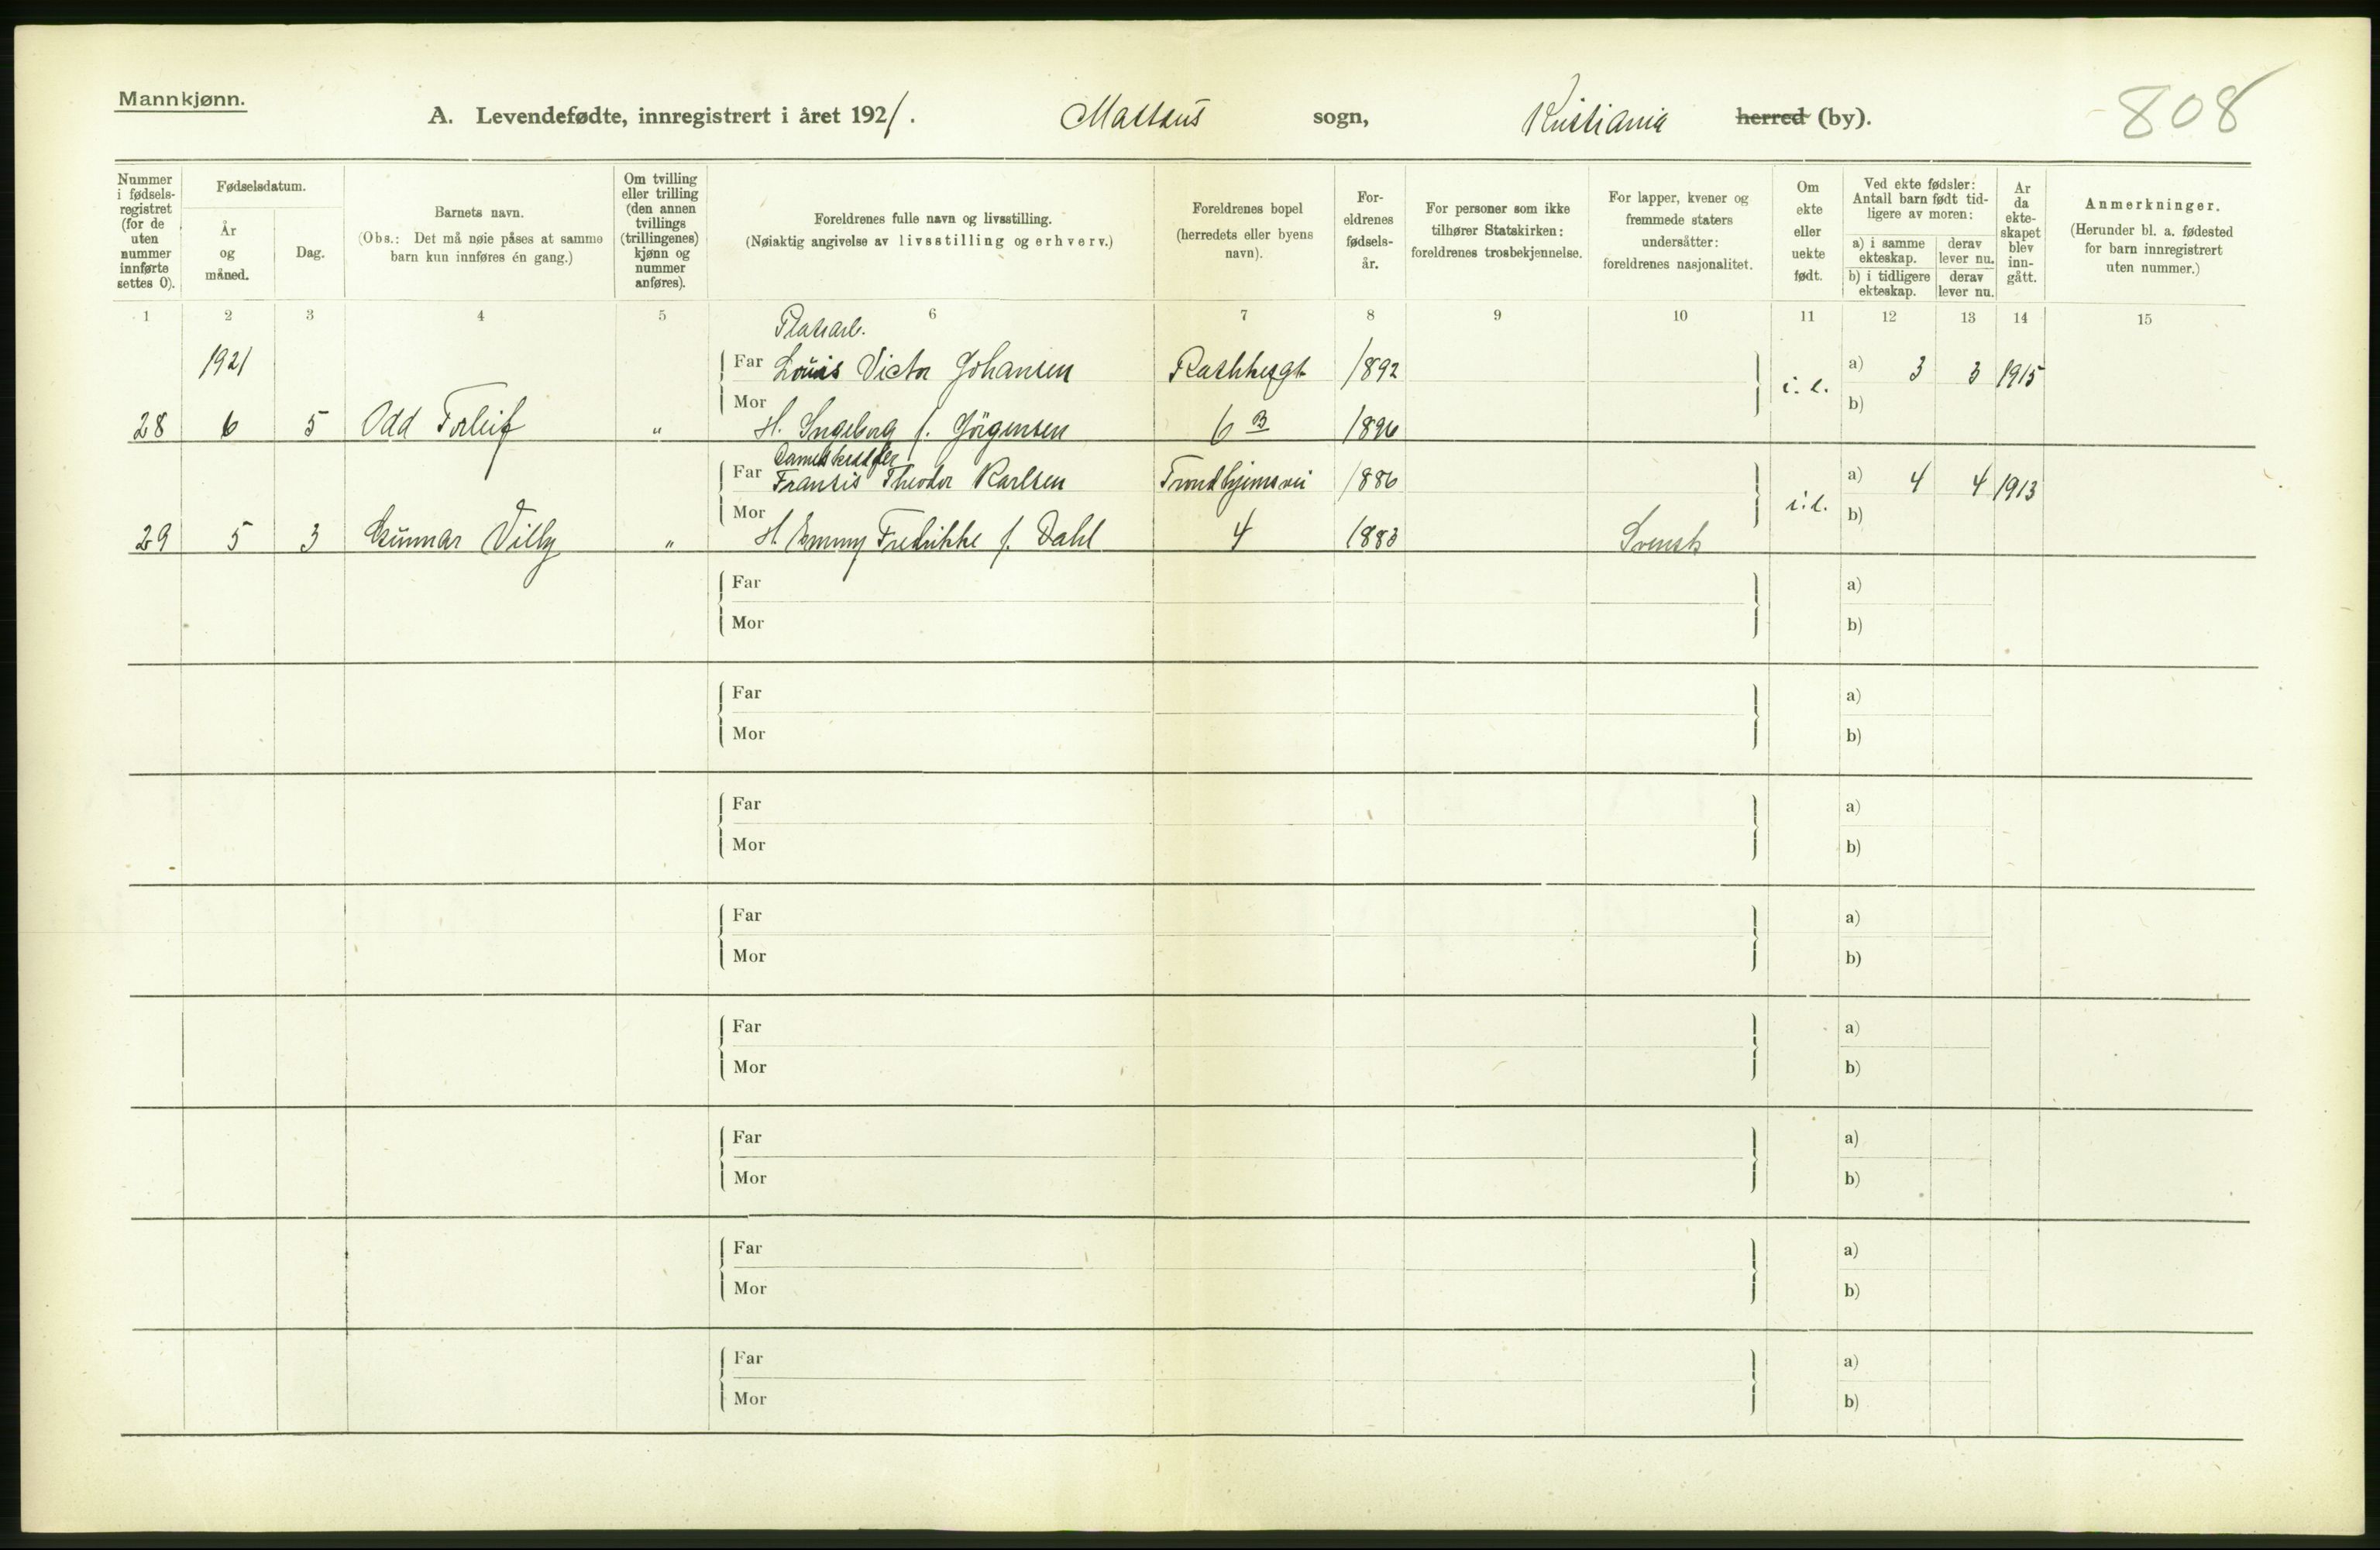 Mannkjønn.
A. Levendefødte, innregistrert i året 1921. Matteus sogn, Kristiania herred (by). 808
Nummer i fødsels-registret (for de uten nummer innførte settes 0).
Fødselsdatum.
År og måned.
Dag.
Barnets navn.
(Obs.: Det må nøie påses at samme barn kun innføres én gang.)
Om tvilling eller trilling (den annen tvillings (trillingenes) kjønn og nummer anføres).
Foreldrenes fulle navn og livsstilling.
(Nøiaktig angivelse av livsstilling og erhverv.)
Foreldrenes bopel (herredets eller byens navn).
For-eldrenes fødsels-år.
For personer som ikke tilhører Statskirken: foreldrenes trosbekjennelse.
For lapper, kvener og fremmede staters undersåtter: foreldrenes nasjonalitet.
Om ekte eller uekte født.
Ved ekte fødsler: Antall barn født tid-ligere av moren:
a) i samme ekteskap.
derav lever nu.
b) i tidligere ekteskap.
derav lever nu.
Ar da ekte-skapet blev inn-gått.
Anmerkninger.
(Herunder bl. a. fødested for barn innregistrert uten nummer.)
1 2 3 4 5 6 7 8 9 10 11 12 13 14 15
Platearb.
1921 Far Louis Victor Johansen 1892 a) 3 3 1915
28 6 5 Odd Torleif " Mor H. Ingeborg f. Jörgensen 6 B 1896 i.e. b)
Far Fransis Theodor Karlsen Trondhjemsvei 1886 a) 4 4 1913
29 5 3 Gunnar Villy " Mor H. Emmy Fredrikke f. Dahl 4 1883 Svensk i.e. b)
Far a)
Mor b)
Far a)
Mor b)
Far a)
Mor b)
Far a)
Mor b)
Far a)
Mor b)
Far a)
Mor b)
Far a)
Mor b)
Far a)
Mor b)